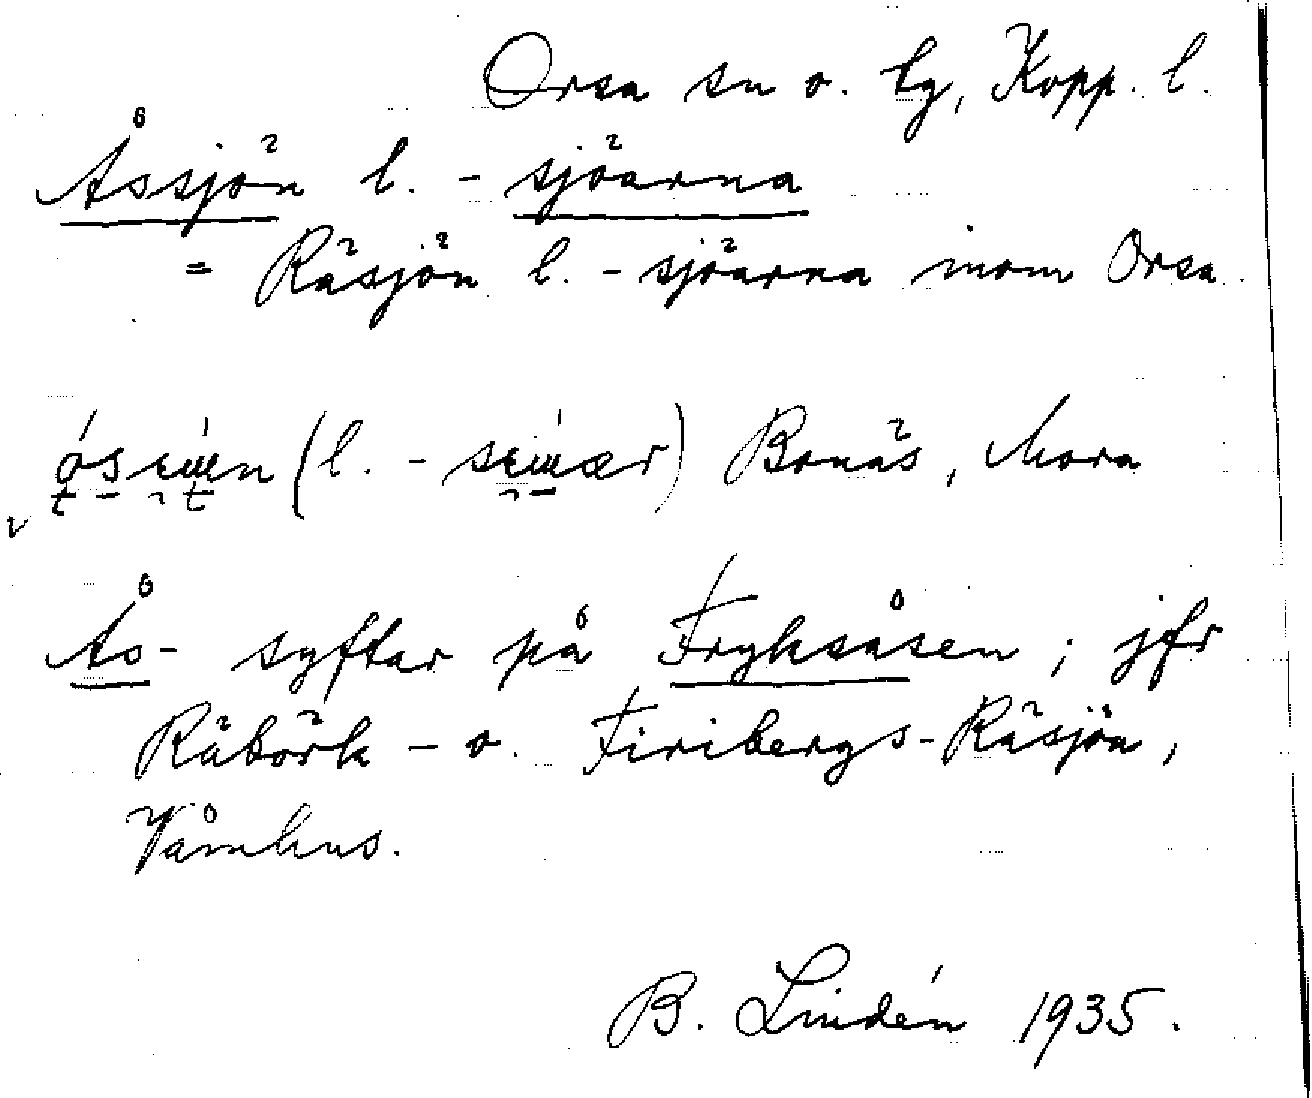 Orsa sn o. tg, Kopp. l.
Åssjön l. -sjöarna
= Räsjön l. -sjöarna inom Orsa.
(l. - ) Bonäs, Mora
Ås- syftar på Fryksåsen; jfr
Räbörk- o. Firibergs-Räsjön,
Våmhus.
B. Lindén 1935.